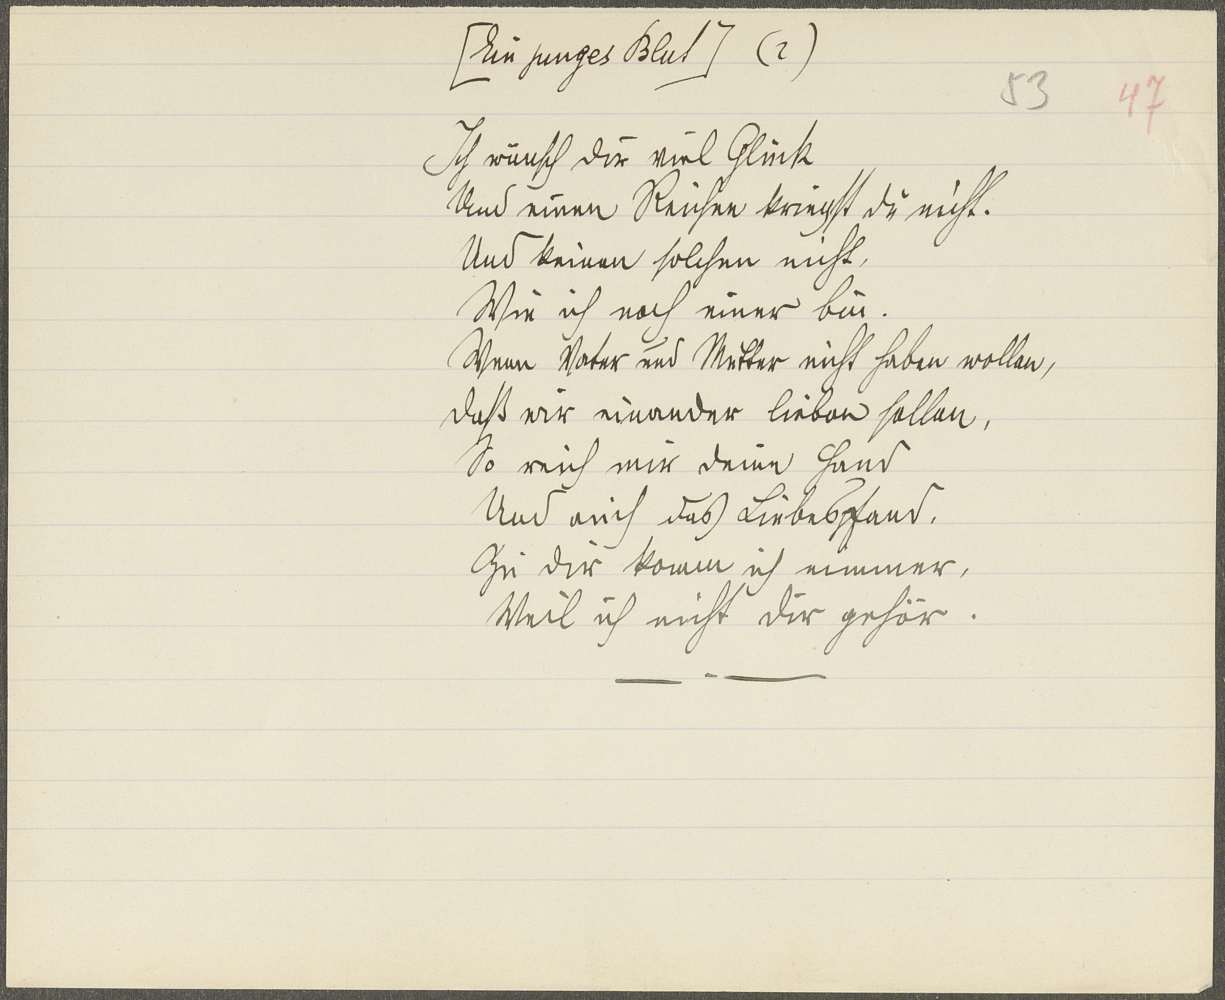 [Ein junges Blut] (2)
53 47
Ich wünsch dir viel Glück
Und einen Reichen kriegst du nicht.
Und keinen solchen nicht,
Wie ich noch einer bin.
Wenn Vater und Mutter nicht haben wollen,
daß wir einander lieben sollen,
So reich mir deine Hand
Und auch das Liebespfand.
Zu dir komm ich nimmer,
Weil ich nicht dir gehör.